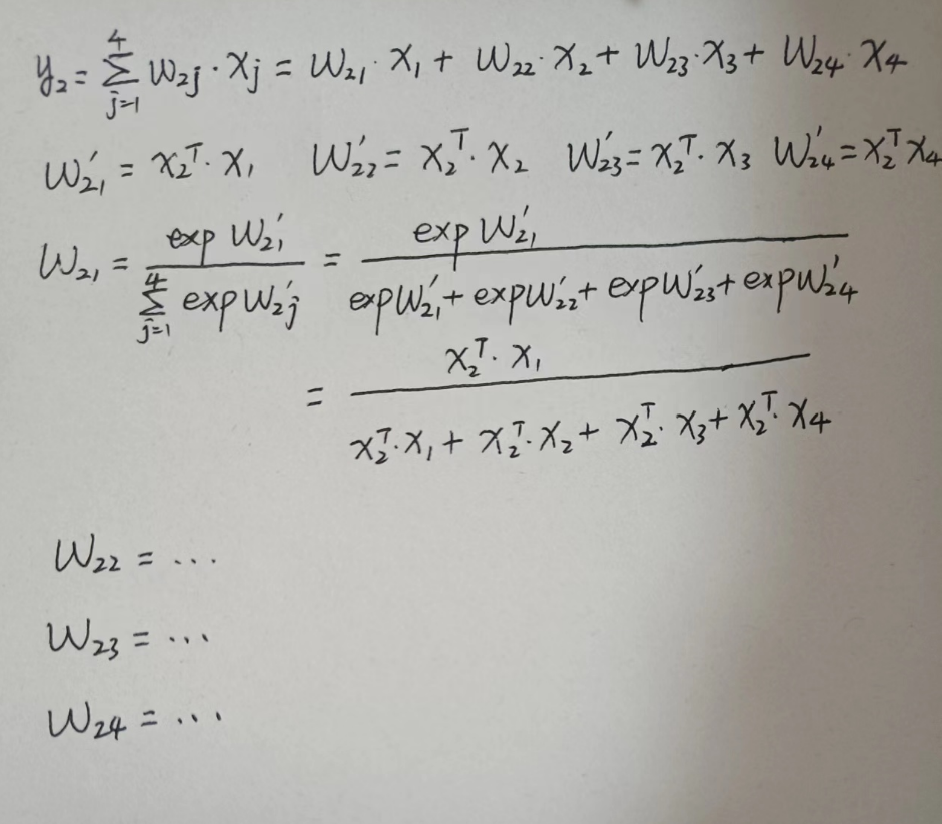 y₂ = ∑⁴ⱼ₌₁ w₂ⱼ · xⱼ = w₂₁ · x₁ + w₂₂ · x₂ + w₂₃ · x₃ + w₂₄ · x₄
w′₂₁ = x₂ᵀ · x₁  w′₂₂ = x₂ᵀ · x₂  w′₂₃ = x₂ᵀ · x₃  w′₂₄ = x₂ᵀ x₄
w₂₁ = exp w′₂₁ / ∑⁴ⱼ₌₁ exp w′₂ⱼ = exp w′₂₁ / (exp w′₂₁ + exp w′₂₂ + exp w′₂₃ + exp w′₂₄)
= x₂ᵀ · x₁ / (x₂ᵀ · x₁ + x₂ᵀ · x₂ + x₂ᵀ · x₃ + x₂ᵀ · x₄)
w₂₂ = ...
w₂₃ = ...
w₂₄ = ...